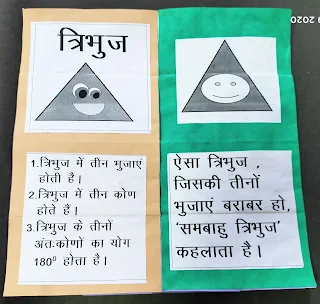 त्रिभुज
1.त्रिभुज में तीन भुजाएं
होती है।
2.त्रिभुज में तीन कोण
होते हैं।
3.त्रिभुज के तीनों
अंतःकोणों का योग
180⁰ होता है।
ऐसा त्रिभुज ,
जिसकी तीनों
भुजाएं बराबर हो,
‘समबाहु त्रिभुज’
कहलाता है।